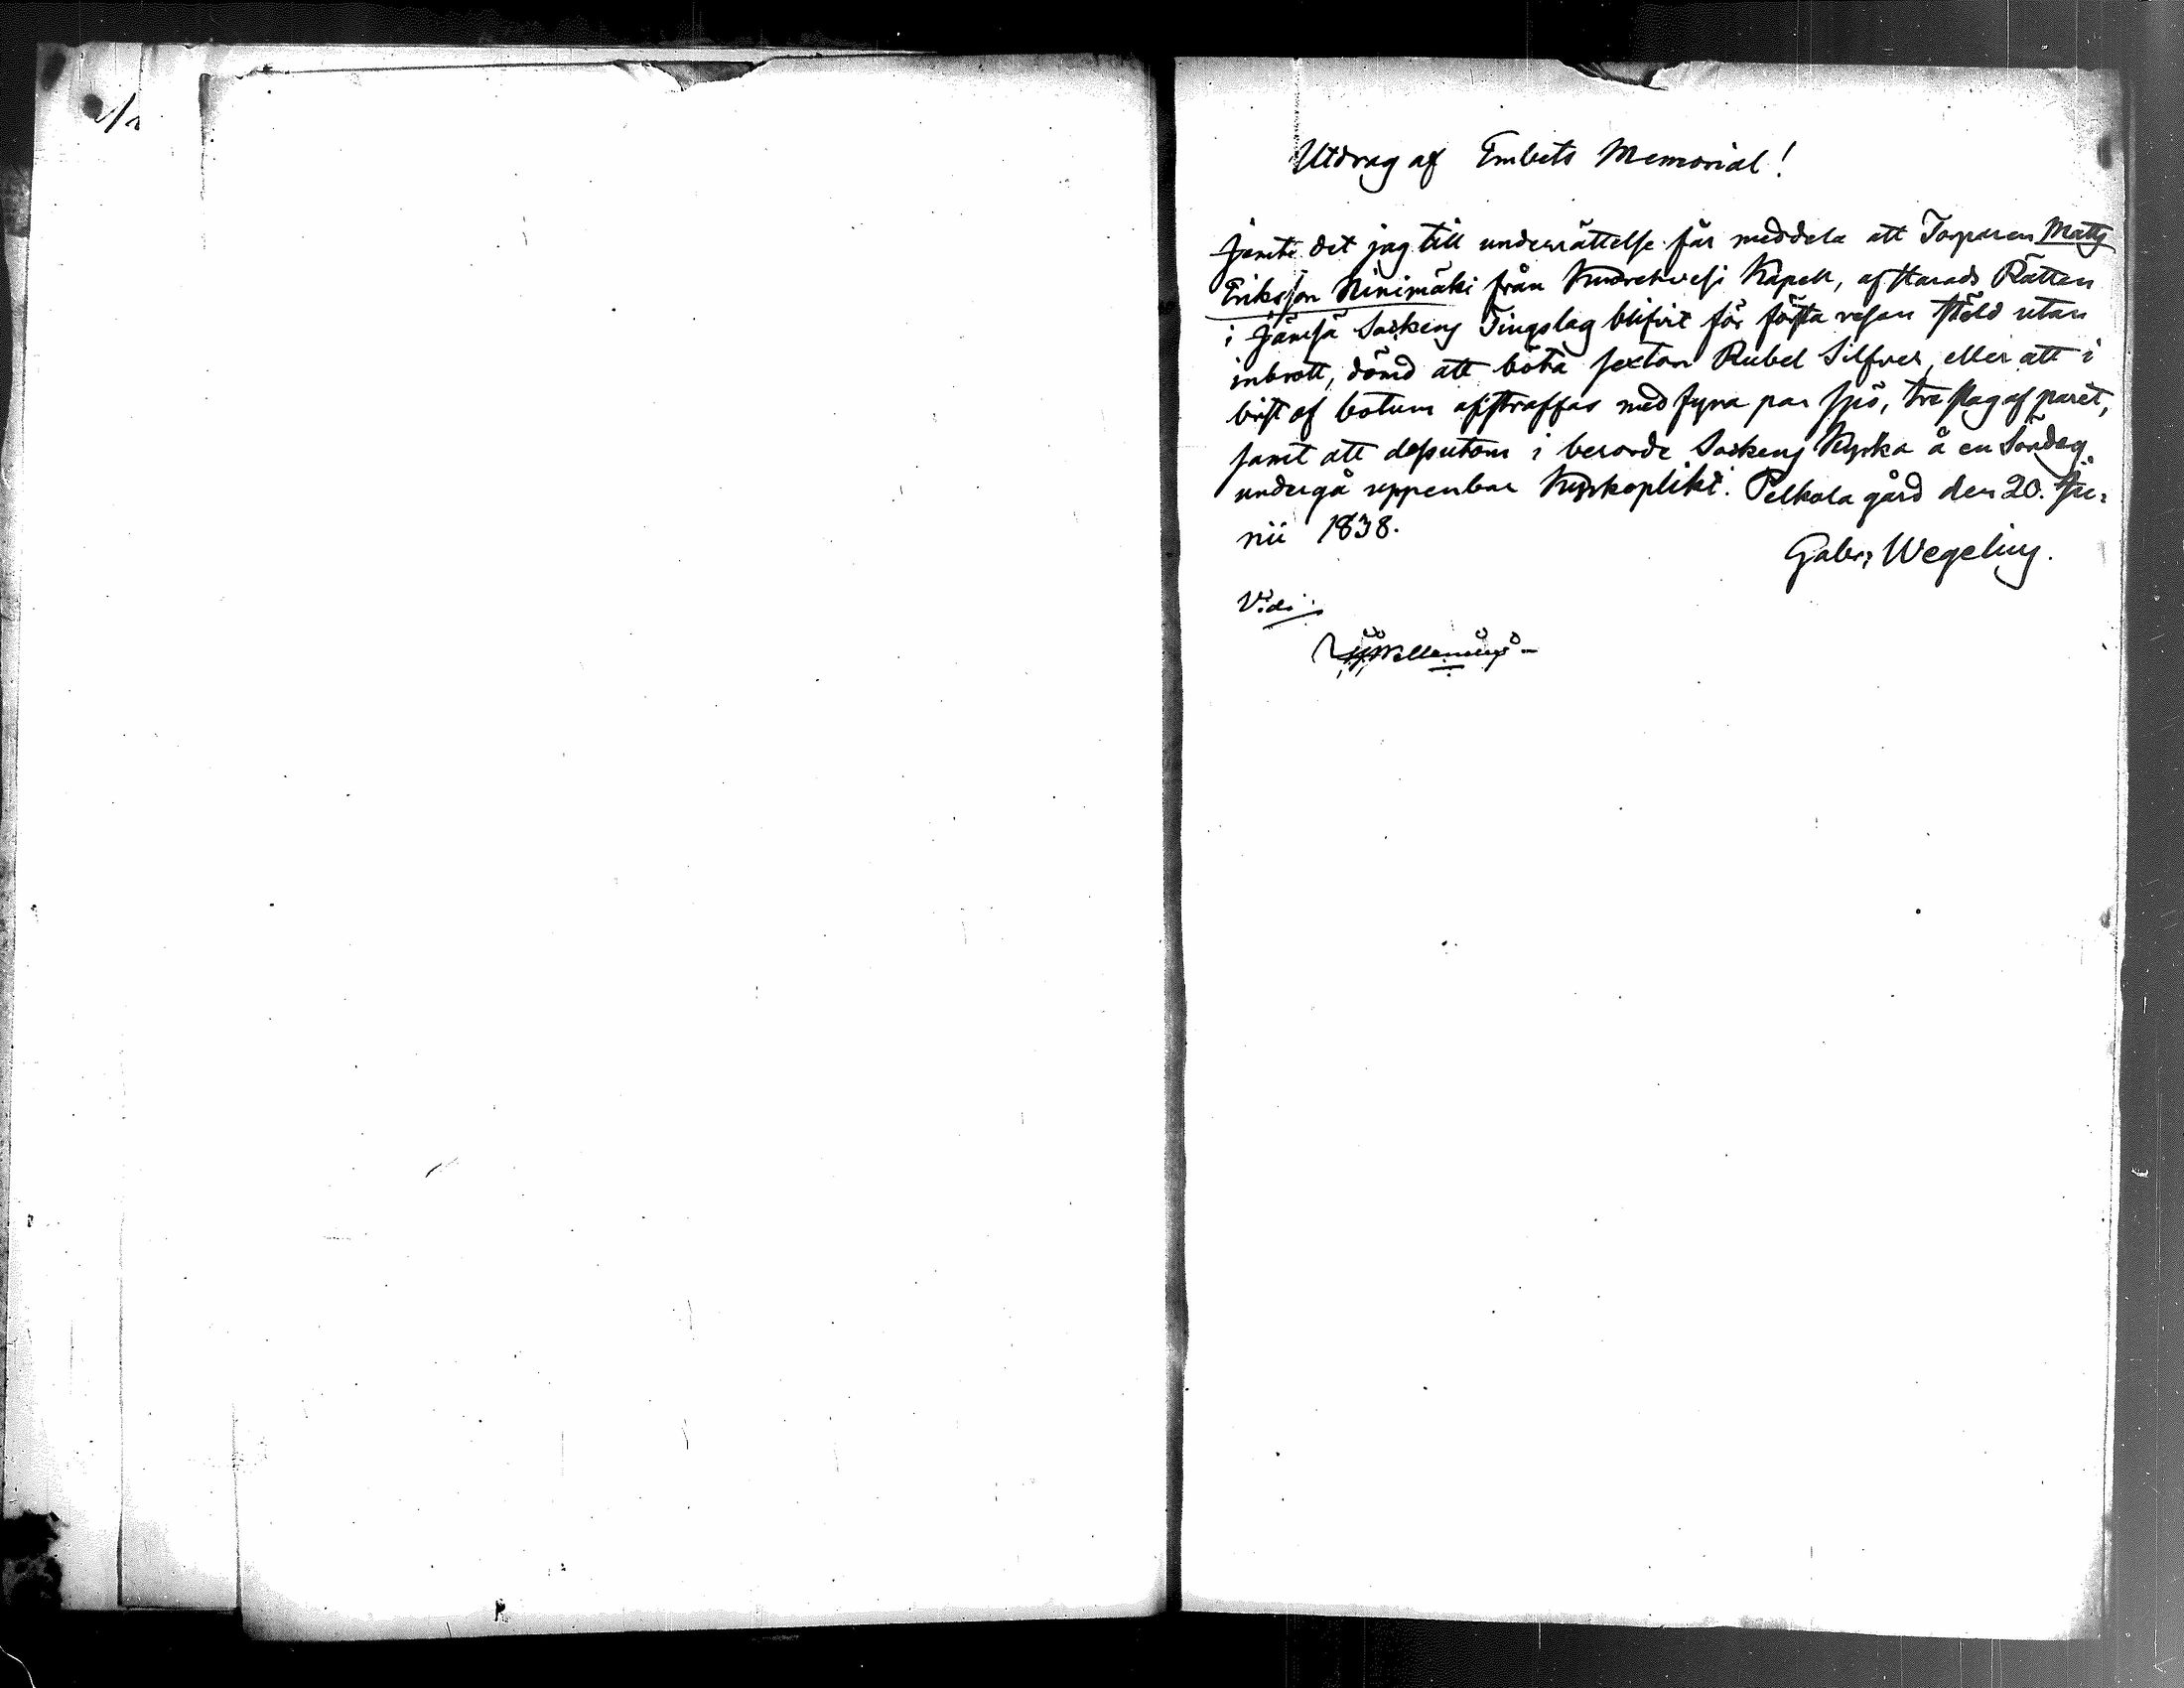 Utdrag af Embets Memorial!
Jemte det jag till underrättelse får meddela att Torparen Matts
Eriksson Ninimäki från Kuorehvesi Kapell, af Härads Rätten
i Jämsä Sockens Tingslag blifvit för första resan stöld utan
inbrott, dömd att böta sexton Rubel Silfver, eller att i
brist af botum afstraffas med fyra par spö, tre slag af paret,
samt att dessutom i berörde Sockens Kyrka å en Söndag
undergå uppenbar Kyrkoplikt. Pelkola gård den 20. Ju-
nii 1838.
Gabr: Wegelius.
Vidi